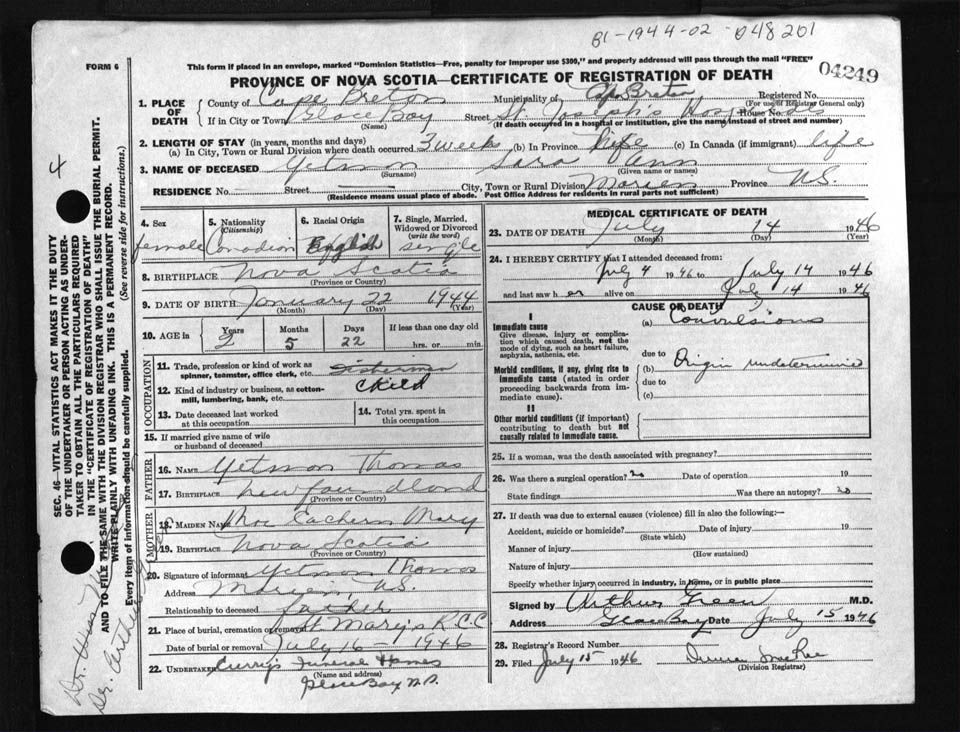 B1-1944-02-048201
This form if placed in an envelope, marked "Dominion Statistics—Free, penalty for improper use $300," and properly addressed will pass through the mail "FREE"
FORM 6
04249
PROVINCE OF NOVA SCOTIA—CERTIFICATE OF REGISTRATION OF DEATH
1. PLACE OF DEATH
County of Cape Breton Municipality of Cape Breton Registered No.
(For use of Registrar General only)
If in City or Town Glace Bay Street St. Joseph's Hospital House No.
(Name) (If death occurred in a hospital or institution, give the name instead of street and number)
2. LENGTH OF STAY (in years, months and days)
(a) In City, Town or Rural Division where death occurred 3 weeks (b) In Province life (c) In Canada (if immigrant) life
3. NAME OF DECEASED Yetman Sara Ann
(Surname) (Given name or names)
RESIDENCE No. Street — City, Town or Rural Division Morien Province N.S.
(Residence means usual place of abode. Post Office Address for residents in rural parts not sufficient)
4. Sex female
5. Nationality (Citizenship) Canadian
6. Racial Origin English
7. Single, Married, Widowed or Divorced (write the word) single
8. BIRTHPLACE Nova Scotia
(Province or Country)
9. DATE OF BIRTH January 22 1944
(Month) (Day) (Year)
10. AGE in Years 2 Months 5 Days 22 If less than one day old
hrs. or min.
OCCUPATION
11. Trade, profession or kind of work as spinner, teamster, office clerk, etc. fisherman
12. Kind of industry or business, as cotton-mill, lumbering, bank, etc. Child
13. Date deceased last worked at this occupation
14. Total yrs. spent in this occupation
15. If married give name of wife or husband of deceased
FATHER
16. NAME Yetman Thomas
17. BIRTHPLACE Newfoundland
(Province or Country)
MOTHER
18. MAIDEN NAME Mac Eachern Mary
19. BIRTHPLACE Nova Scotia
(Province or Country)
20. Signature of informant Yetman Thomas
Address Morien, N.S.
Relationship to deceased father
21. Place of burial, cremation or removal St Mary's R.C.C
Date of burial or removal July 16 — 1946
22. UNDERTAKER Curry's Funeral Homes
(Name and address)
Glace Bay N.S.
MEDICAL CERTIFICATE OF DEATH
23. DATE OF DEATH July 14 1946
(Month) (Day) (Year)
24. I HEREBY CERTIFY that I attended deceased from:
July 4 1946 to July 14 1946
and last saw h er alive on July 14 1946
CAUSE OF DEATH
I
Immediate cause
Give disease, injury or complication which caused death, not the mode of dying, such as heart failure, asphyxia, asthenia, etc.
(a) Convulsions
due to
Morbid conditions, if any, giving rise to immediate cause (stated in order proceeding backwards from immediate cause).
(b) Origin undetermined
due to
(c)
II
Other morbid conditions (if important) contributing to death but not causally related to immediate cause.
25. If a woman, was the death associated with pregnancy?
26. Was there a surgical operation? no Date of operation 19
State findings Was there an autopsy? no
27. If death was due to external causes (violence) fill in also the following:—
Accident, suicide or homicide? Date of injury 19
(State which)
Manner of injury
(How sustained)
Nature of injury
Specify whether injury occurred in industry, in home, or in public place
Signed by Arthur Green M.D.
Address Glace Bay Date July 15 1946
28. Registrar's Record Number
29. Filed July 15 1946
(Division Registrar)
4
SEC. 46—VITAL STATISTICS ACT MAKES IT THE DUTY
OF THE UNDERTAKER OR PERSON ACTING AS UNDER-
TAKER TO OBTAIN ALL THE PARTICULARS REQUIRED
IN THE "CERTIFICATE OF REGISTRATION OF DEATH"
AND TO FILE THE SAME WITH THE DIVISION REGISTRAR WHO SHALL ISSUE THE BURIAL PERMIT.
WRITE PLAINLY WITH UNFADING INK. THIS IS A PERMANENT RECORD.
Every item of information should be carefully supplied. (See reverse side for instructions.)
Dr. Arthur Green